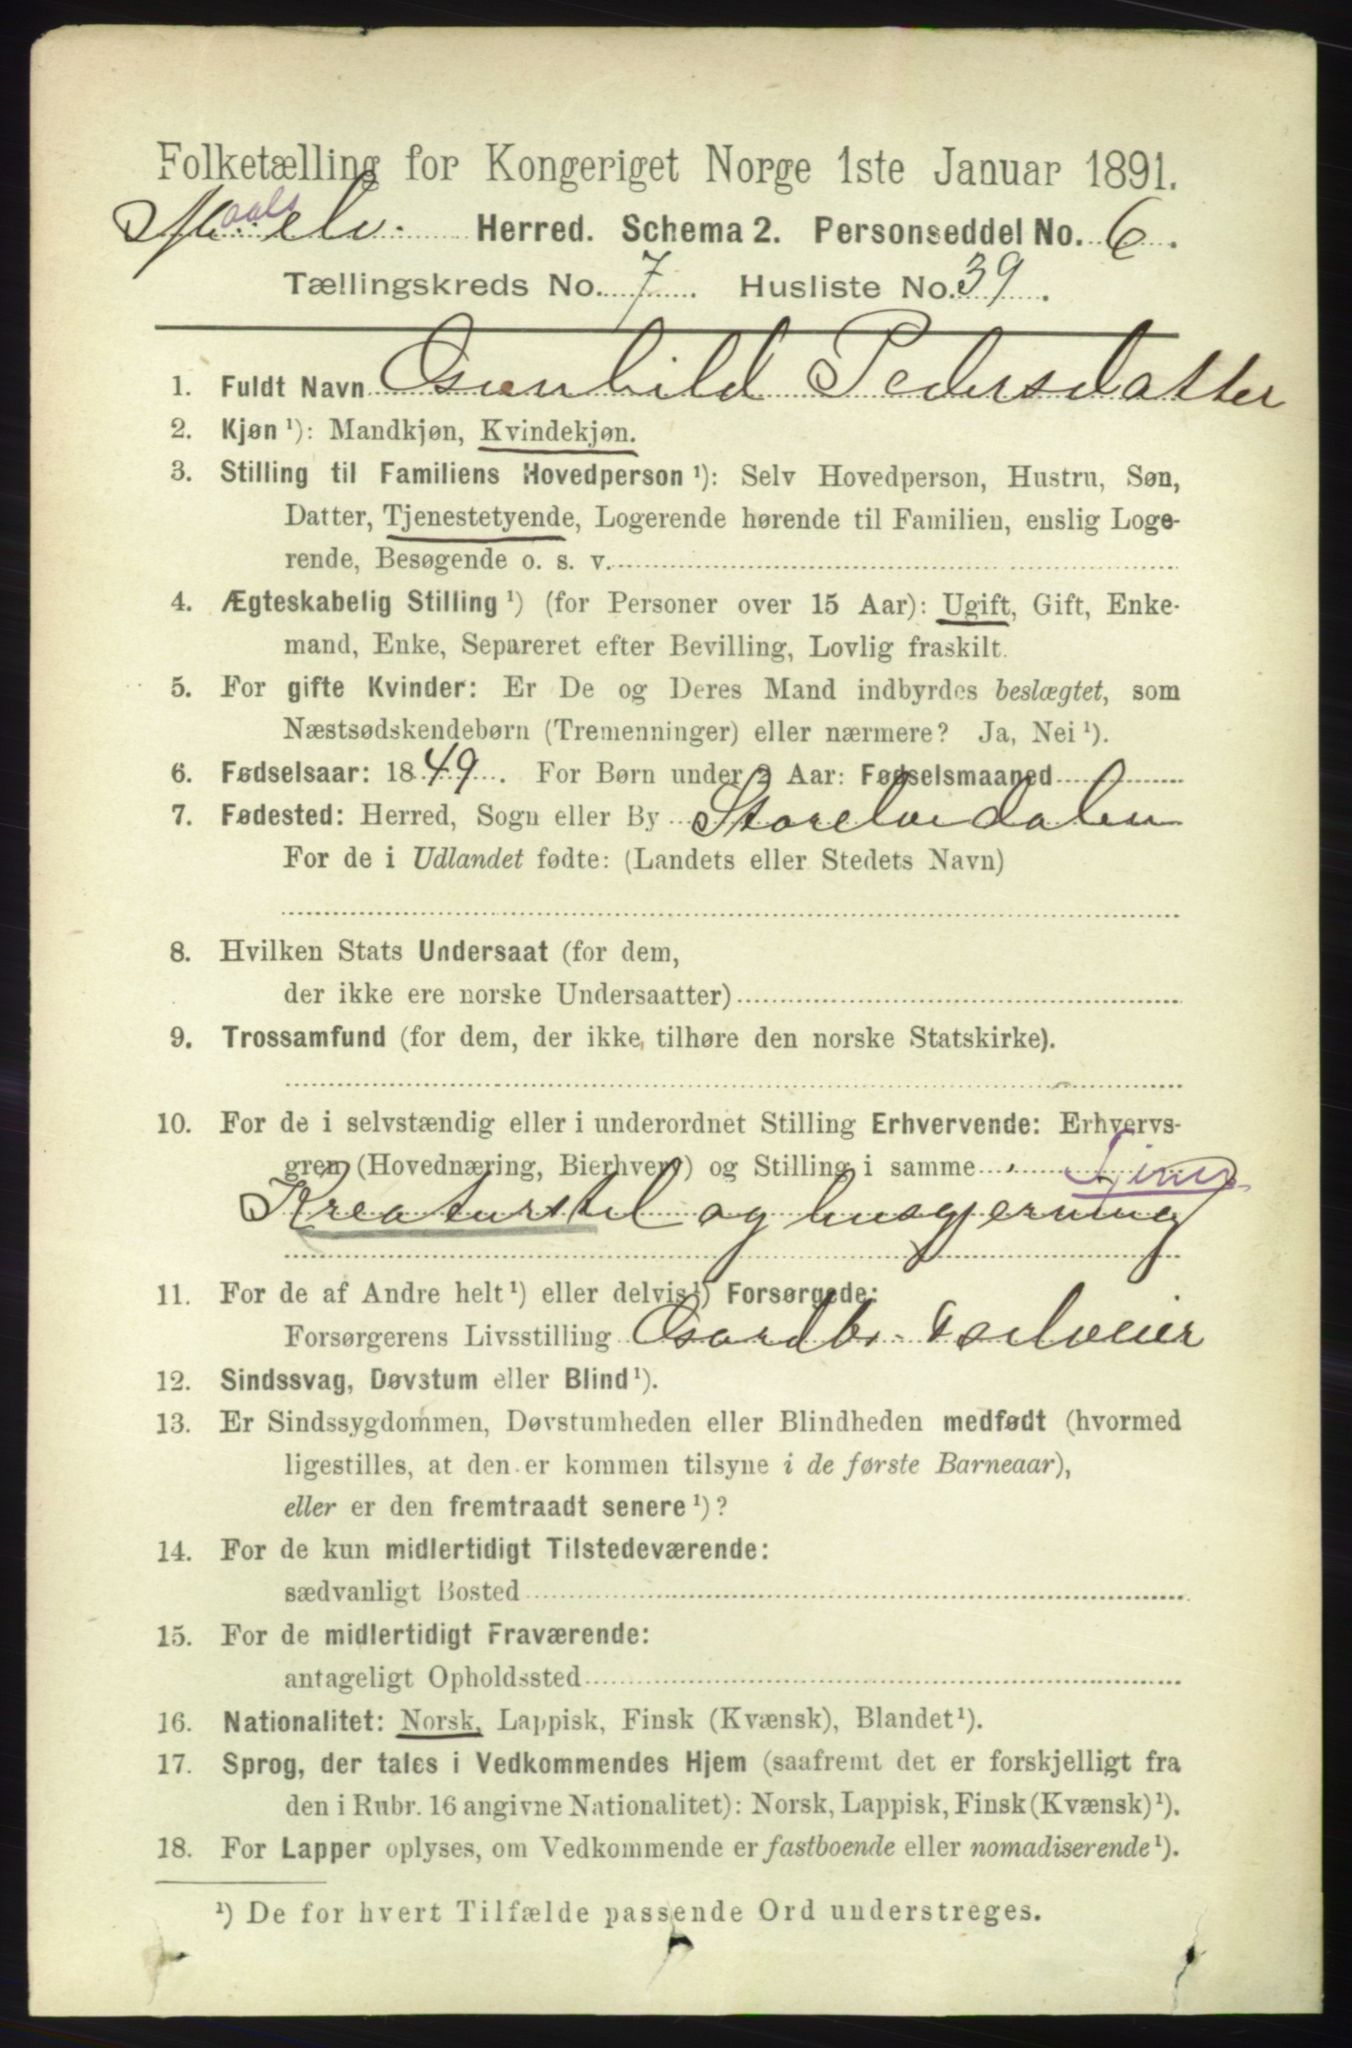 Folketælling for Kongeriget Norge 1ste Januar 1891.
Maalselv. Herred. Schema 2. Personseddel No. 6.
Tællingskreds No. 7. Husliste No. 39.
1. Fuldt Navn Gunhild Pedersdatter
2. Kjøn ¹): Mandkjøn, Kvindekjøn.
3. Stilling til Familiens Hovedperson ¹): Selv Hovedperson, Hustru, Søn,
Datter, Tjenestetyende, Logerende hørende til Familien, enslig Loge-
rende, Besøgende o. s. v.
4. Ægteskabelig Stilling ¹) (for Personer over 15 Aar): Ugift, Gift, Enke-
mand, Enke, Separeret efter Bevilling, Lovlig fraskilt.
5. For gifte Kvinder: Er De og Deres Mand indbyrdes beslægtet, som
Næstsødskendebørn (Tremenninger) eller nærmere? Ja, Nei ¹).
6. Fødselsaar: 1849. For Børn under 2 Aar: Fødselsmaaned
7. Fødested: Herred, Sogn eller By Storelvedalen
For de i Udlandet fødte: (Landets eller Stedets Navn)
8. Hvilken Stats Undersaat (for dem,
der ikke ere norske Undersaatter)
9. Trossamfund (for dem, der ikke tilhøre den norske Statskirke).
10. For de i selvstændig eller i underordnet Stilling Erhvervende: Erhvervs-
gren (Hovednæring, Bierhverv) og Stilling i samme
Kreaturstel og husgjerning
11. For de af Andre helt ¹) eller delvis ¹) Forsørgede:
Forsørgerens Livsstilling Gaardbr. Selveier
12. Sindssvag, Døvstum eller Blind ¹).
13. Er Sindssygdommen, Døvstumheden eller Blindheden medfødt (hvormed
ligestilles, at den er kommen tilsyne i de første Barneaar),
eller er den fremtraadt senere ¹)?
14. For de kun midlertidigt Tilstedeværende:
sædvanligt Bosted
15. For de midlertidigt Fraværende:
antageligt Opholdssted
16. Nationalitet: Norsk, Lappisk, Finsk (Kvænsk), Blandet ¹).
17. Sprog, der tales i Vedkommendes Hjem (saafremt det er forskjelligt fra
den i Rubr. 16 angivne Nationalitet): Norsk, Lappisk, Finsk (Kvænsk) ¹).
18. For Lapper oplyses, om Vedkommende er fastboende eller nomadiserende ¹).
¹) De for hvert Tilfælde passende Ord understreges.